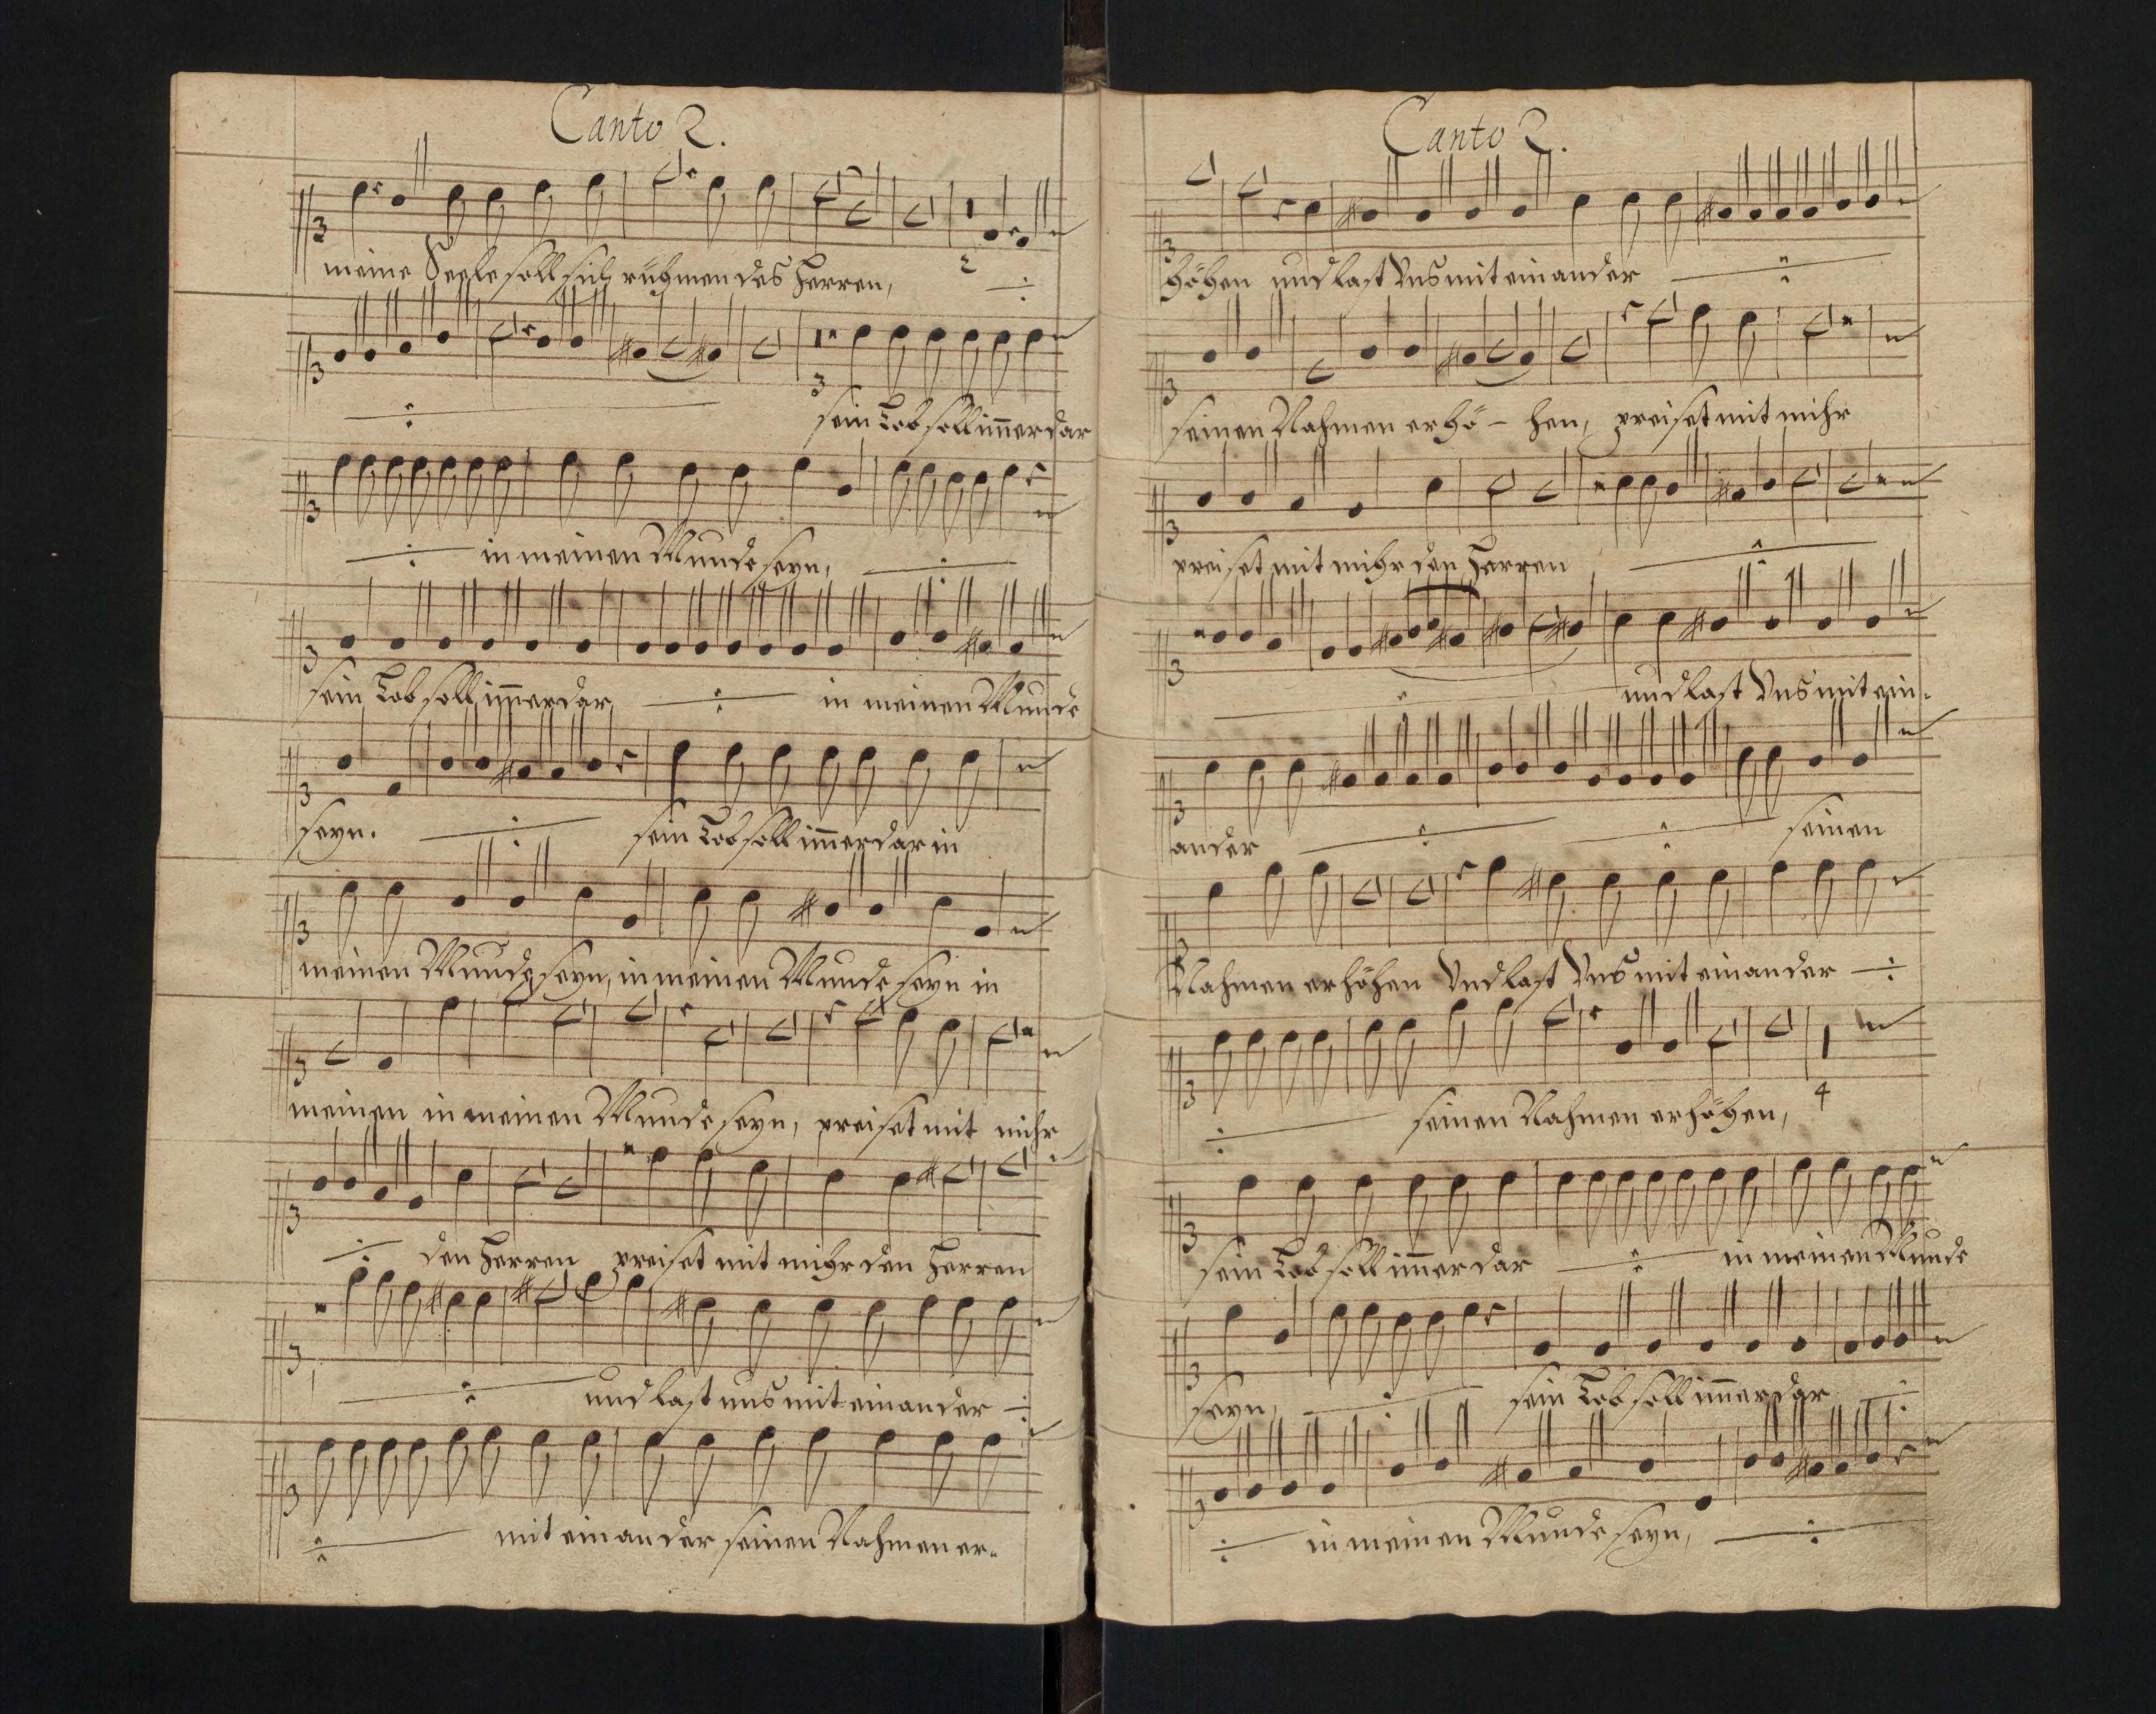 Canto 2.
meine Seele soll sich rühmen des Herren,
2
3
sein Lob soll im̄erdar
in meinen Munde seyn,
sein Lob soll im̄erdar in meinen Munde
seyn. sein Lob soll im̄erdar in
meinen Munde seyn, in meinen Munde seyn in
meinen in meinen Munde seyn, preiset mit mihr
den Herren preiset mit mihr den Herren
und last uns mit einander
mit einander seinen Nahmen er-
Canto 2.
höhen und last Uns mit einander
seinen Nahmen erhö - hen, preiset mit mihr
preiset mit mihr den Herren
und last Uns mit ein-
ander seinen
Nahmen erhöhen Und last Uns mit einander
seinen Nahmen erhöhen, 4
sein Lob soll im̄erdar in meinen Munde
seyn, sein Lob soll im̄erdar
in meinen Munde seyn,